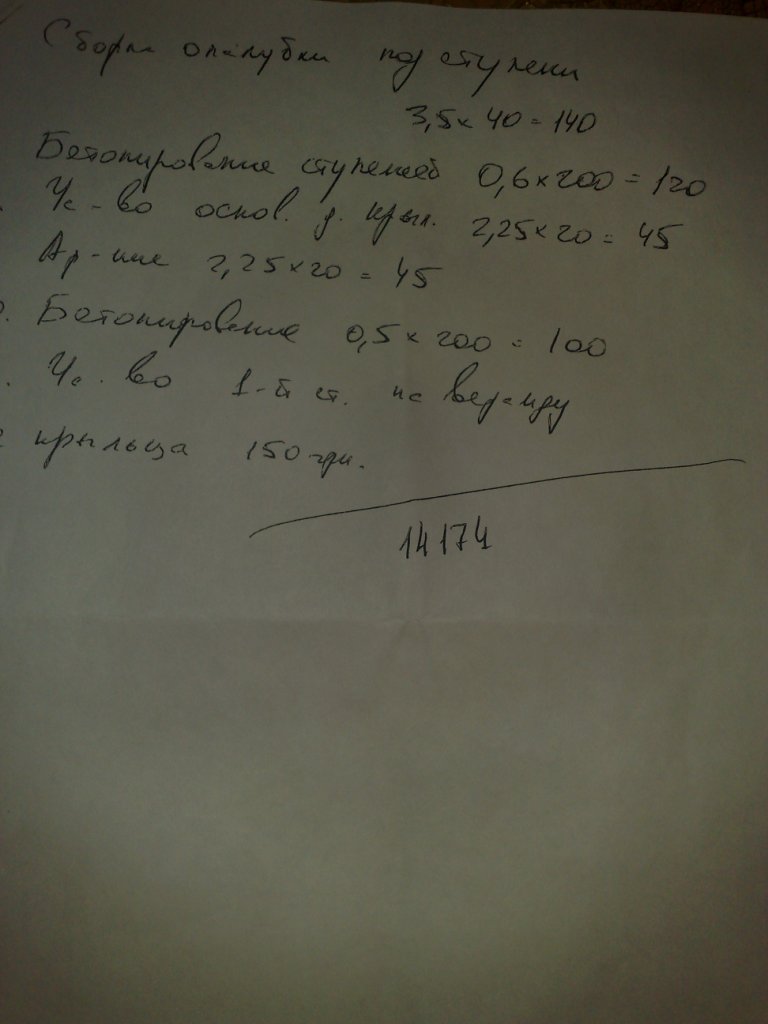 Сборка опалубки под ступени
3,5 × 40 = 140
Бетонирование ступеней 0,6 × 200 = 120
Ус-во основ. д. крыл. 2,25 × 20 = 45
Ар-ние 2,25 × 20 = 45
Бетонирование 0,5 × 200 = 100
Ус-во 1-й ст. на веранду
крыльца 150 грн.
14174